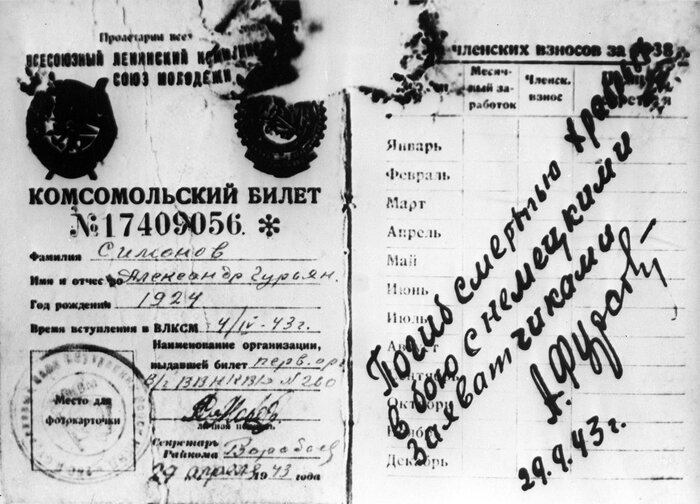 Пролетарии всех
ВСЕСОЮЗНЫЙ ЛЕНИНСКИЙ
СОЮЗ МОЛОДЕЖИ
КОМСОМОЛЬСКИЙ БИЛЕТ
№17409056. *
Фамилия Симонов
Имя и отчество Александр Гурьян.
Год рождения 1924
Время вступления в ВЛКСМ 4/IV-43г.
Наименование организации,
выдавшей билет перв. орг
Место для
фотокарточки
личная подпись
Секретарь
Райкома
29 апреля 1943 года
членских взносов за 1938
Месяч-
ный за-
работок
Членск.
взнос
Январь
Февраль
Март
Апрель
Май
Июнь
Июль
Август
Сентябрь
Октябрь
Ноябрь
Декабрь
Погиб смертью храбрых
в бою с немецкими
захватчиками
А. Фурсов
29.9.43г.